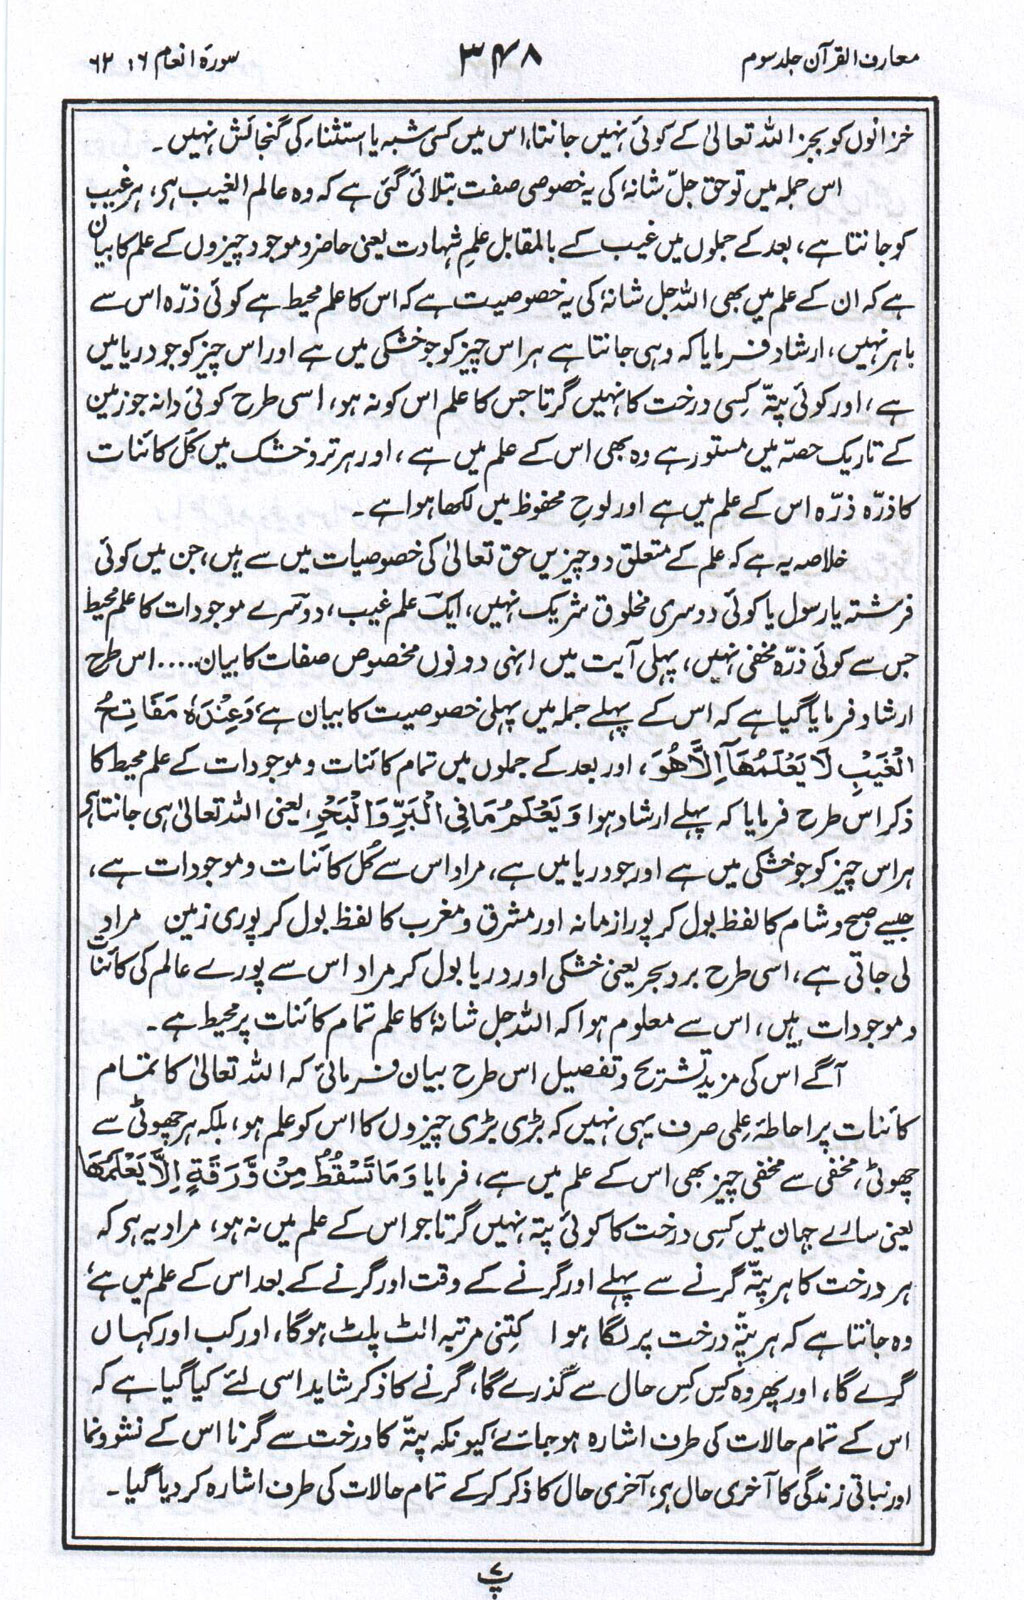 معارف القرآن جلد سوم
۳۴۸
سورۂ انعام ۶: ۶۲
خزانوں کو بجز اللہ تعالیٰ کے کوئی نہیں جانتا، اس میں کسی شبہ یا استثناء کی گنجائش نہیں۔
اس جملہ میں تو حق جلّ شانہٗ کی یہ خصوصی صفت بتلائی گئی ہے کہ وہ عالم الغیب ہی، ہر غیب
کو جانتا ہے، بعد کے جملوں میں غیب کے بالمقابل علمِ شہادت یعنی حاضر و موجود چیزوں کے علم کا بیان
ہے کہ ان کے علم میں بھی اللہ جل شانہٗ کی یہ خصوصیت ہے کہ اس کا علم محیط ہے کوئی ذرّہ اس سے
باہر نہیں، ارشاد فرمایا کہ وہی جانتا ہے ہر اس چیز کو جو خشکی میں ہے اور اس چیز کو جو دریا میں
ہے، اور کوئی پتّہ کِسی درخت کا نہیں گرتا جس کا علم اس کو نہ ہو، اسی طرح کوئی دانہ جو زمین
کے تاریک حصّہ میں مستور ہے وہ بھی اس کے علم میں ہے، اور ہر تر و خشک میں کُل کائنات
کا ذرّہ ذرّہ اس کے علم میں ہے اور لوحِ محفوظ میں لکھا ہوا ہے۔
خلاصہ یہ ہے کہ علم کے متعلق دو چیزیں حق تعالیٰ کی خصوصیات میں سے ہیں، جن میں کوئی
فرشتہ یا رسول یا کوئی دوسری مخلوق شریک نہیں، ایک علم غیب، دوسرے موجودات کا علم محیط
جس سے کوئی ذرّہ مخفی نہیں، پہلی آیت میں انہی دونوں مخصوص صفات کا بیان.... اس طرح
ارشاد فرمایا گیا ہے کہ اس کے پہلے جملہ میں پہلی خصوصیت کا بیان ہے، وَعِنْدَہٗ مَفَاتِحُ
الْغَیْبِ لَا یَعْلَمُھَآ اِلَّا ھُوَ، اور بعد کے جملوں میں تمام کائنات و موجودات کے علم محیط کا
ذکر اس طرح فرمایا کہ پہلے ارشاد ہوا وَیَعْلَمُ مَا فِی الْبَرِّ وَالْبَحْرِ، یعنی اللہ تعالیٰ ہی جانتا ہی
ہر اس چیز کو جو خشکی میں ہے اور جو دریا میں ہے، مراد اس سے کُل کائنات و موجودات ہے،
جیسے صبح و شام کا لفظ بول کر پورا زمانہ اور مشرق و مغرب کا لفظ بول کر پوری زمین مراد
لی جاتی ہے، اسی طرح بر و بحر یعنی خشکی اور دریا بول کر مراد اس سے پورے عالم کی کائنات
و موجودات ہیں، اس سے معلوم ہوا کہ اللہ جل شانہٗ کا علم تمام کائنات پر محیط ہے۔
آگے اس کی مزید تشریح و تفصیل اس طرح بیان فرمائی کہ اللہ تعالیٰ کا تمام
کائنات پر احاطۂ علمی صرف یہی نہیں کہ بڑی بڑی چیزوں کا اس کو علم ہو، بلکہ ہر چھوٹی سے
چھوٹی، مخفی سے مخفی چیز بھی اس کے علم میں ہے، فرمایا وَمَا تَسْقُطُ مِنْ وَّرَقَۃٍ اِلَّا یَعْلَمُھَا
یعنی سارے جہان میں کسِی درخت کا کوئی پتہ نہیں گرتا جو اس کے علم میں نہ ہو، مراد یہ ہی کہ
ہر درخت کا ہر پتّہ گرنے سے پہلے اور گرنے کے وقت اور گرنے کے بعد اس کے علم میں ہے،
وہ جانتا ہے کہ ہر پتّہ درخت پر لگا ہوا کتِنی مرتبہ الٹ پلٹ ہوگا، اور کب اور کہاں
گرے گا، اور پھر وہ کِس کِس حال سے گذرے گا، گرنے کا ذکر شاید اسی لئے کیا گیا ہے کہ
اس کے تمام حالات کی طرف اشارہ ہو جائے، کیونکہ پتّہ کا درخت سے گرنا اس کے نشو و نما
اور نباتی زندگی کا آخری حال ہی، آخری حال کا ذکر کرکے تمام حالات کی طرف اشارہ کر دیا گیا۔
پ ۷